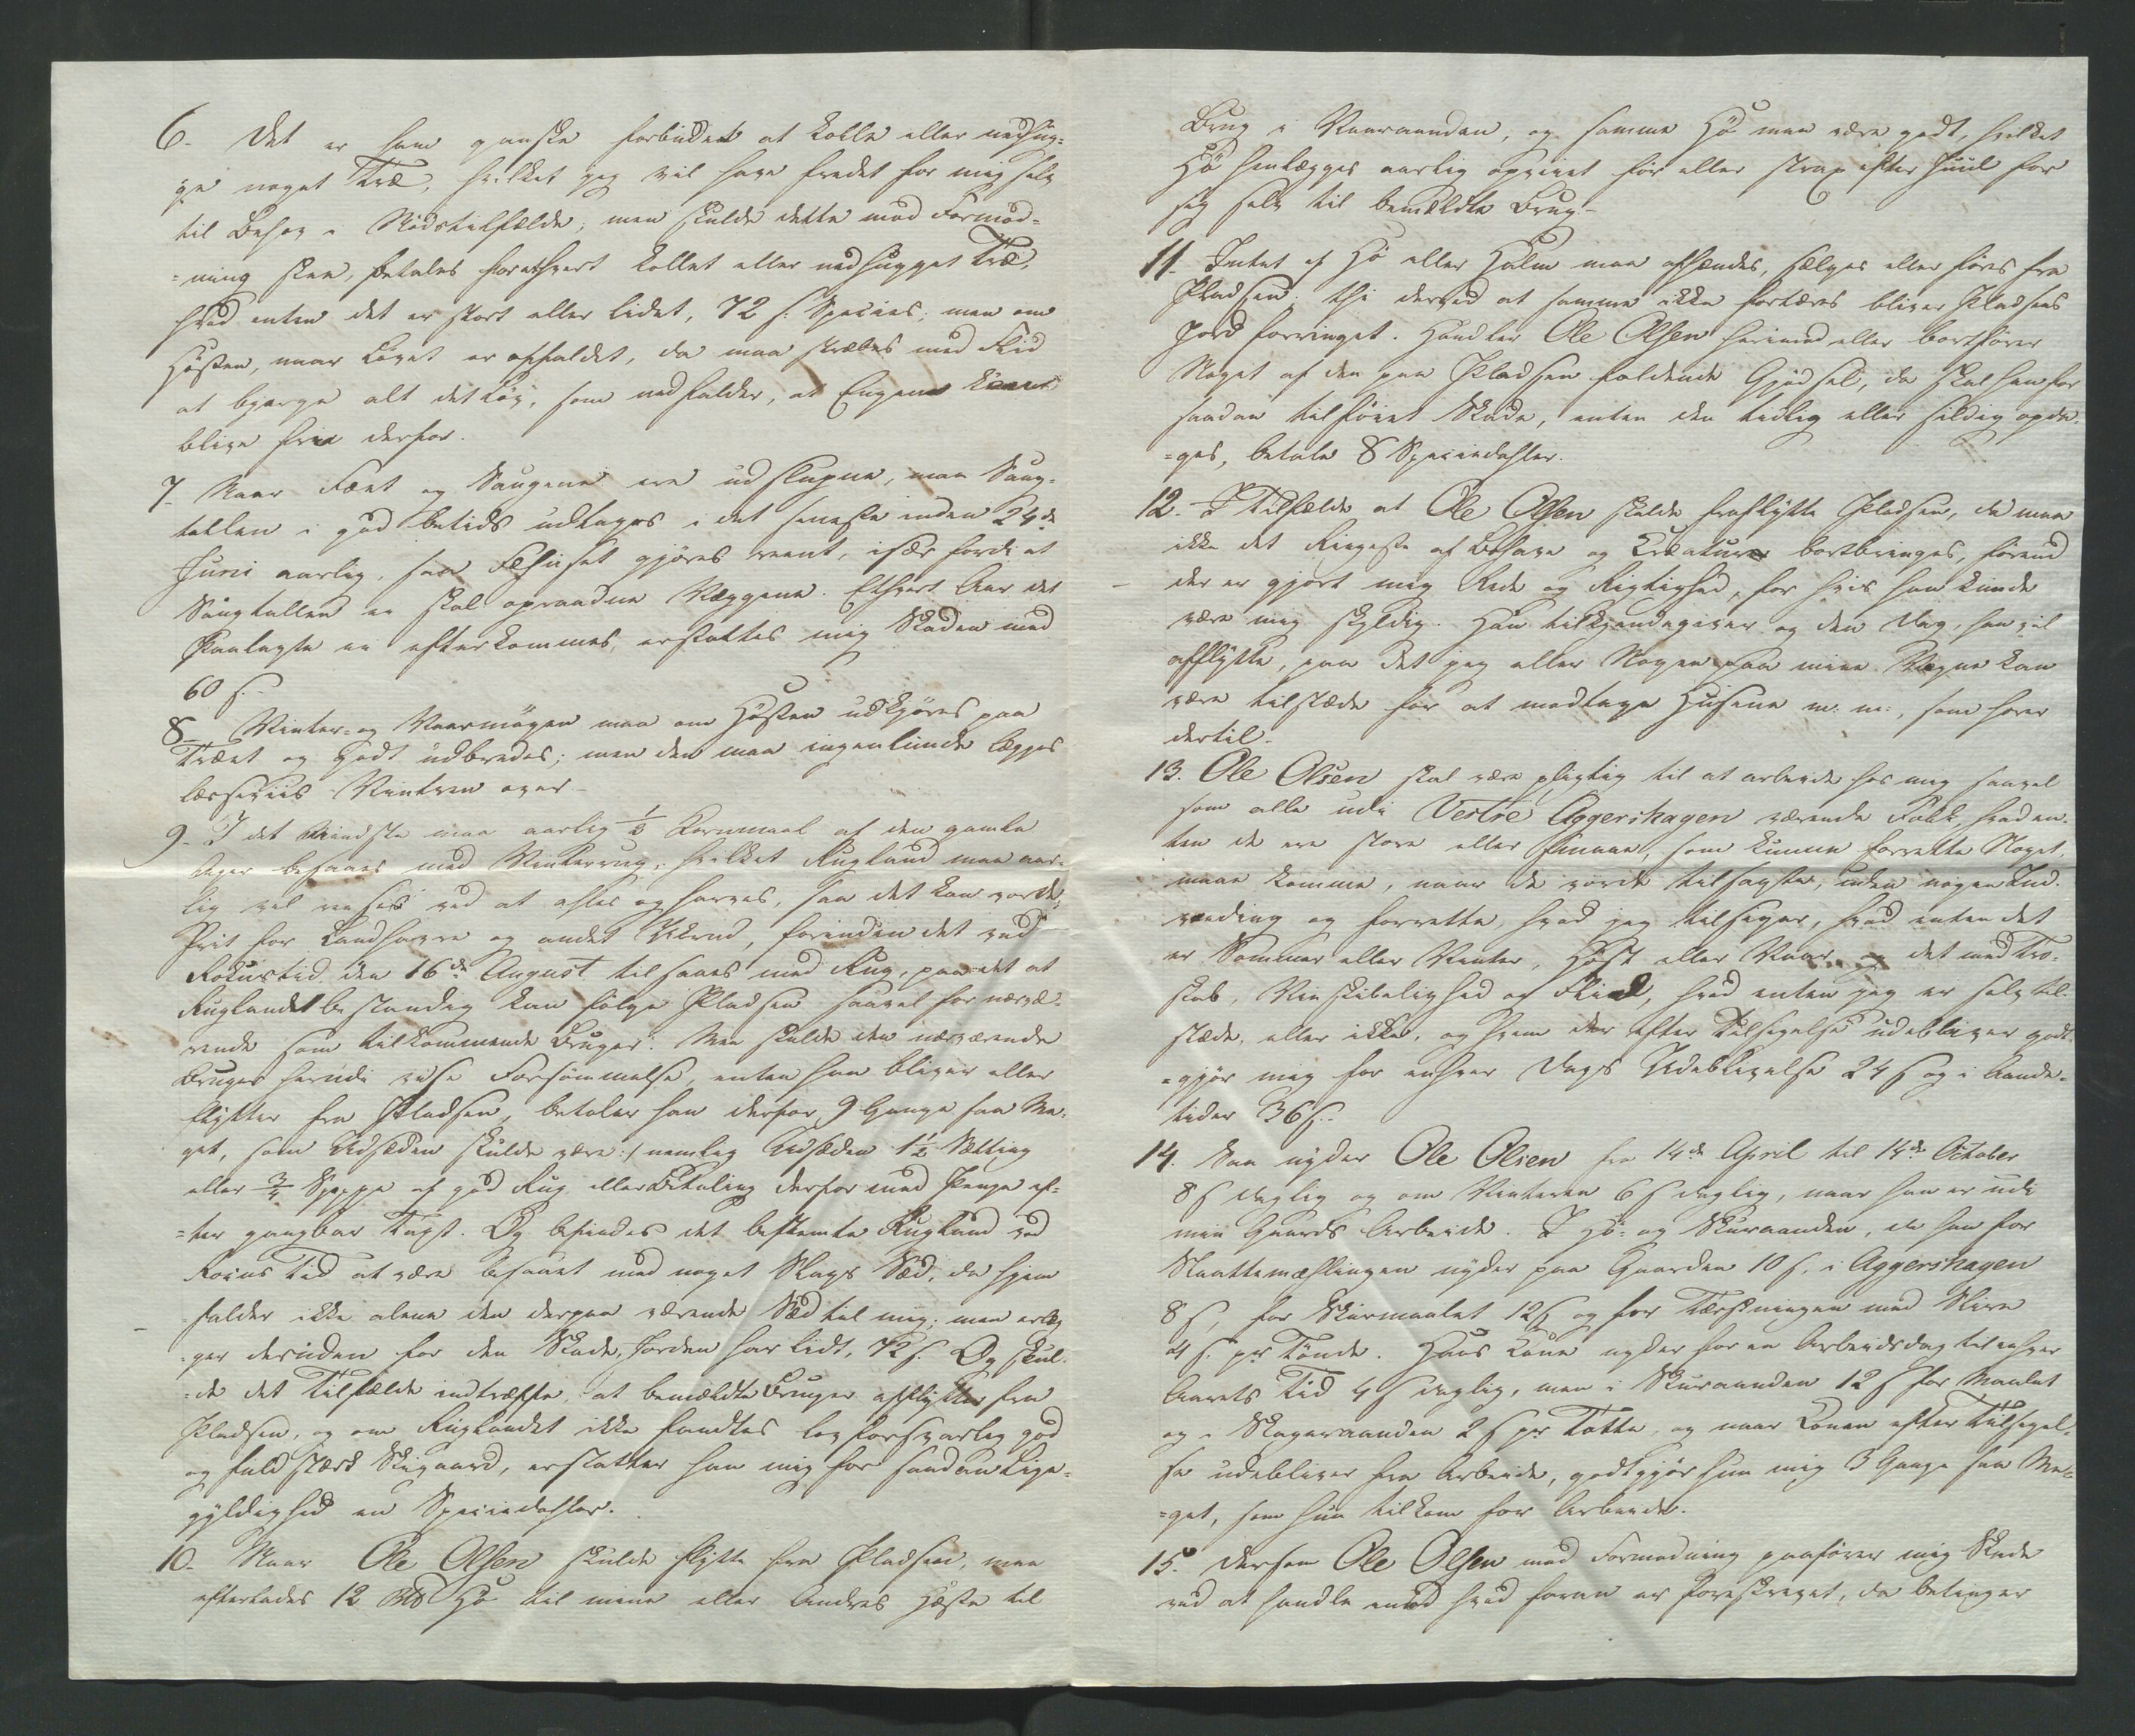 6. Det er ham ganske forbudet at kolle eller nedhug-
ge noget Træ, hvilket jeg vil have fredet for mig selv
til Behov i Nødstilfælde; men skulde dette mod Formod-
=ning skee, betales for ethvert kollet eller nedhugget Træ,
hvad enten det er stort eller lidet, 72 s. Species; men om
Høsten, naar Løvet er affaldet, da maa stræbes med Flid
at bjerge alt det Løv, som nedfalder, at Engene kunne
blive frie derfor.
7. Naar Fæet og Saugene ere udslupne, maa Saug-
tallen i god betids udtages i det seneste inden 24de
Juni aarlig, saa Fehuset gjøres reent, især fordi at
Saugtallen ei skal opraadne Væggene. Ethvert Aar det
Paalagte ei efterkommes, erstattes mig Skaden med
60 s.-
8. Vinter- og Vaarmøgen maa om Høsten udkjøres paa
Træet og godt udbredes; men den maa ingenlunde lægges
læsseviis Vinteren over-
9. I det Mindste maa aarlig 1/2 Kornmaal af den gamle
Ager besaaes med Vinterrug, hvilket Rugland maa aar-
lig vel renses ved at asles og harves, saa det kan vorde
frit for Landhavre og andet Ukrud, forinden det ved
Rokustid den 16de August tilsaaes med Rug, paa det at
Ruglandet bestandig kan følge Pladsen saavel for nærvæ-
rende som tilkommende Bruger. Men skulde den nærværende
Bruger herudi vise Forsømmelse, enten han bliver eller
flytter fra Pladsen, betaler han derfor 9 Gange saa Me-
get, som Udsæden skulde være :/ nemlig Udsæden 1 1/2 Sætting
eller 3/4 Skjeppe af god Rug eller Betaling derfor med Penge ef-
=ter gangbar Taxt. Og befindes det bestemte Rugland ved
Rokus Tid at være besaaet med noget Slags Sæd, da hjem
falder ikke alene den derpaa værende Sæd til mig; men erlæg
ger desuden for den Skade, Jorden har lidt, 72 s. Og skul-
=de det Tilfælde indtræffe, at bemældte Bruger afflytter fra
Pladsen, og om Ruglandet ikke fandtes lovforsvarlig god
og fuldstærk Skigaard, erstatter han mig for saadan Lige-
gyldighed en Speciedahler.
10. Naar Ole Olsen skulde flytte fra Pladsen, maa
efterlades 12 Hø til mine eller Andres Hæste til
Brug i Vaaraanden, og samme Hø maa være godt, hvilket
Hø henlægges aarlig opveiet før eller strax efter Juul for
sig selv til bemældte Brug-
11. Intet af Hø eller Halm maa afhændes, sælges eller føres fra
Pladsen; thi derved at samme ikke fortæres bliver Pladsens
Jord forringet. Handler Ole Olsen herimod eller bortfører
Noget af den paa Pladsen faldende Gjødsel, da skal han for
saadan tilføiet Skade, enten den tidlig eller sildig opda-
=ges, betale 8 Speciedahler.
12. I Tilfælde at Ole Olsen skulde fraflytte Pladsen, da maa
ikke det Ringeste af Bohave og Creaturer bortbringes, førend
der er gjort mig Rede og Rigtighed, for hvis han kunde
være mig skyldig. Han tilkjendegiver og den Dag, han vil
afflytte, paa det jeg eller Nogen paa mine Vegne kan
være tilstæde for at modtage Husene m: m:, som hører
dertil.
13. Ole Olsen skal være pligtig til at arbeide hos mig saavel
som alle udi Vestre Aggershagen værende Folk, hvad en-
ten de ere store eller smaae, som kunne forrette Noget,
maae komme, naar de vorde tilsagte, uden nogen Ind-
vending og forrette, hvad jeg tilsiger, hvad enten det
er Sommer eller Vinter, Høst eller Vaar og det med Tro-
skab, Vinskibelighed og Fliid, hvad enten jeg er selv til-
stæde, eller ikke, og hvem der efter Tilsigelse udebliver godt
=gjør mig for enhver Dags Udeblivelse 24 s og i Aande-
tider 36 s.-
14. Saa nyder Ole Olsen fra 14de April til 14de October
8 s daglig og om Vinteren 6 s daglig, naar han er udi
min Gaards Arbeide. I Hø- og Skuraanden, da han for
Slaattemæslingen nyder paa Gaarden 10 s, i Aggershagen
8 s, for Skurmaalet 12 s og for Tærskningen med Skive
4 s. pr Tønde. Hans Kone nyder for en Arbeidsdag til enhver
Aarets Tid 4 s daglig, men i Skuraanden 12 s for Maalet
og i Skageraanden 2 s pr Totte, og naar Konen efter Tilsigel-
se udebliver fra Arbeide, godtgjør hun mig 3 Gange saa Me-
=get, som hun tilkom for Arbeide.
15. Dersom Ole Olsen mod Formodning paafører mig Skade
ved at handle imod hvad foran er foreskrevet, da betinger